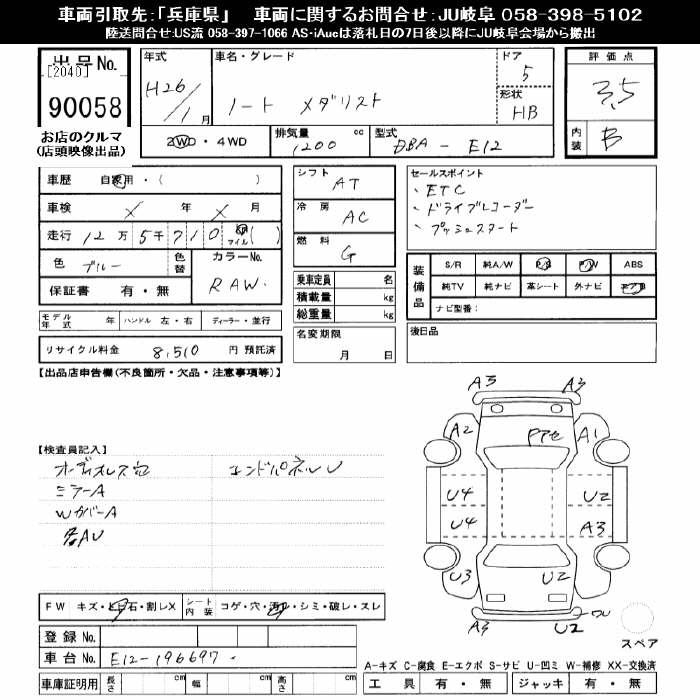 車両引取先:「兵庫県」 車両に関するお問合せ:JU岐阜 058-398-5102
陸送問合せ:US流 058-397-1066 AS-iAucは落札日の7日後以降にJU岐阜会場から搬出
出品No.
[2040]
90058
お店のクルマ
(店頭映像出品)
年式
H26/1月
車名・グレード
ノート メダリスト
ドア
5
形状
HB
評価点
3.5
内装
B
2WD・4WD
排気量 1200 cc
型式 DBA-E12
車歴 自家用・( )
車検 × 年 × 月
走行 12万5千710 km マイル ( )
色 ブルー
色替
カラーNo. RAW
保証書 有・無
シフト AT
冷房 AC
燃料 G
乗車定員 名
積載量 kg
総重量 kg
名変期限
月 日
セールスポイント
・ETC
・ドライブレコーダー
・プッシュスタート
装備品
S/R 純A/W P/S P/W ABS
純TV 純ナビ 革シート 外ナビ エアB
ナビ型番:
後日品
モデル年式 年
ハンドル 左・右
ディーラー・並行
リサイクル料金 8,510 円 預託済
【出品店申告欄(不良箇所・欠品・注意事項等)】
【検査員記入】
オーディオレス穴
エンドパネルU
ミラーA
WカバーA
各AU
A3 A3
A2 Fアセ A1
U4 U2
U4 A3
U3 U2
A3 U2
スペア
FW キズ・ヒ石・割レX
シート内装 コゲ・穴・汚レ・シミ・破レ・スレ
登録No.
車台No. E12-196697
車庫証明用 長さ cm 幅 cm 高さ cm
A-キズ C-腐食 E-エクボ S-サビ U-凹ミ W-補修 XX-交換済
工具 有・無 ジャッキ 有・無